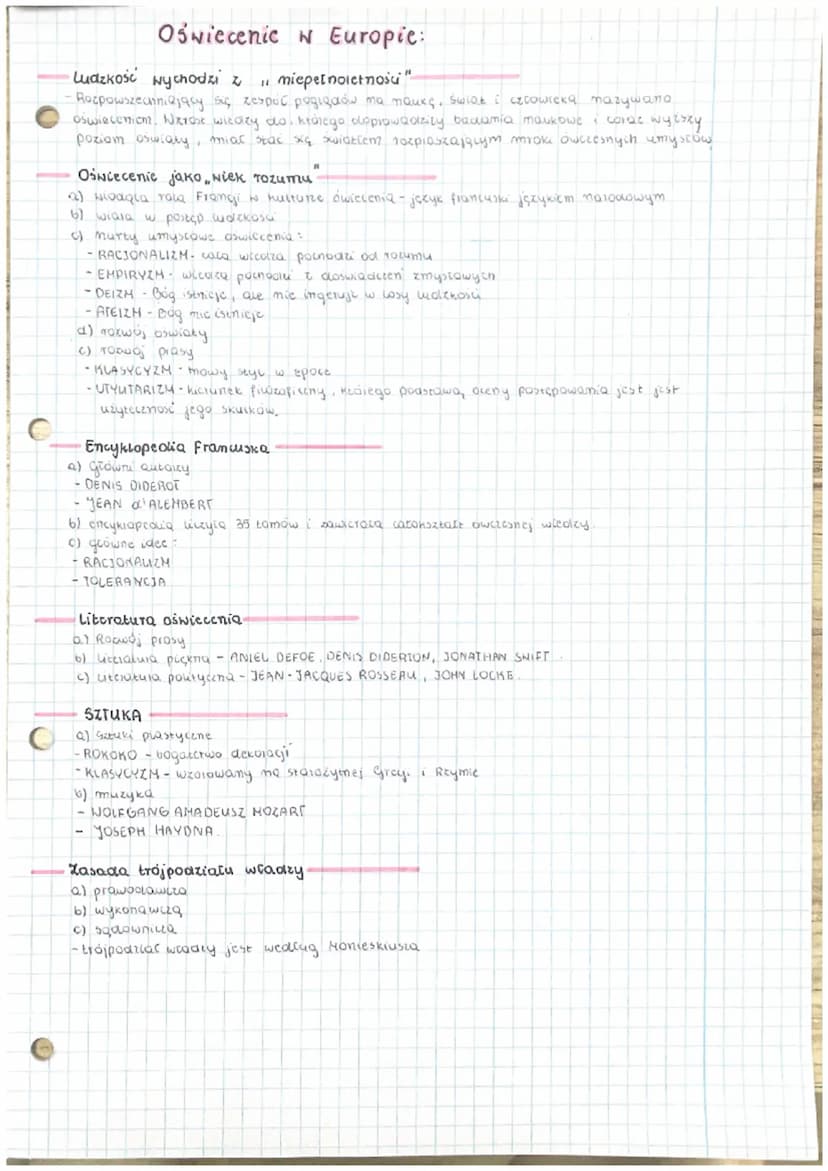 Oświecenie w Europie:
Ludzkość wychodzi z „niepełnoletności"
- Rozpowszechniający się zespół poglądów na naukę, świat i człowieka nazywano
oświeceniem. Wzrost wiedzy do, którego doprowadziły badania naukowe i coraz wyższy
poziom oświaty, miał stać się światłem rozpraszającym mroki ówczesnych umysłów
Oświecenie jako „wiek rozumu"
a) wiodąca rola Francji w kulturze oświecenia - język francuski językiem narodowym
b) wiara w postęp ludzkości
c) nurty umysłowe oświecenia:
- RACJONALIZM - cała wiedza pochodzi od rozumu
- EMPIRYZM - wiedza pochodzi z doświadczeń zmysłowych
- DEIZM - Bóg istnieje, ale nie ingeruje w losy ludzkości
- ATEIZM - Bóg nie istnieje
d) rozwój oświaty
e) rozwój prasy
- KLASYCYZM - nowy styl w epoce
- UTYLITARYZM - kierunek filozoficzny, którego podstawą oceny postępowania jest jest
użyteczność jego skutków.
Encyklopedia Francuska
a) główni autorzy
- DENIS DIDEROT
- JEAN d'ALEMBERT
b) encyklopedia liczyła 35 tomów i zawierała całokształt ówczesnej wiedzy.
c) główne idee:
- RACJONALIZM
- TOLERANCJA
Literatura oświecenia
a) Rozwój prasy
b) literatura piękna - ANIEL DEFOE, DENIS DIDERTON, JONATHAN SWIFT.
c) literatura polityczna - JEAN-JACQUES ROSSEAU, JOHN LOCKE.
SZTUKA
a) sztuki plastyczne
- ROKOKO - bogactwo dekoracji
- KLASYCYZM - wzorowany na starożytnej Grecji i Rzymie
b) muzyka
- WOLFGANG AMADEUSZ MOZART
- JOSEPH HAYDNA.
Zasada trójpodziału władzy
a) prawodawcza
b) wykonawcza
c) sądownicza
- trójpodział władzy jest według Monteskiusza